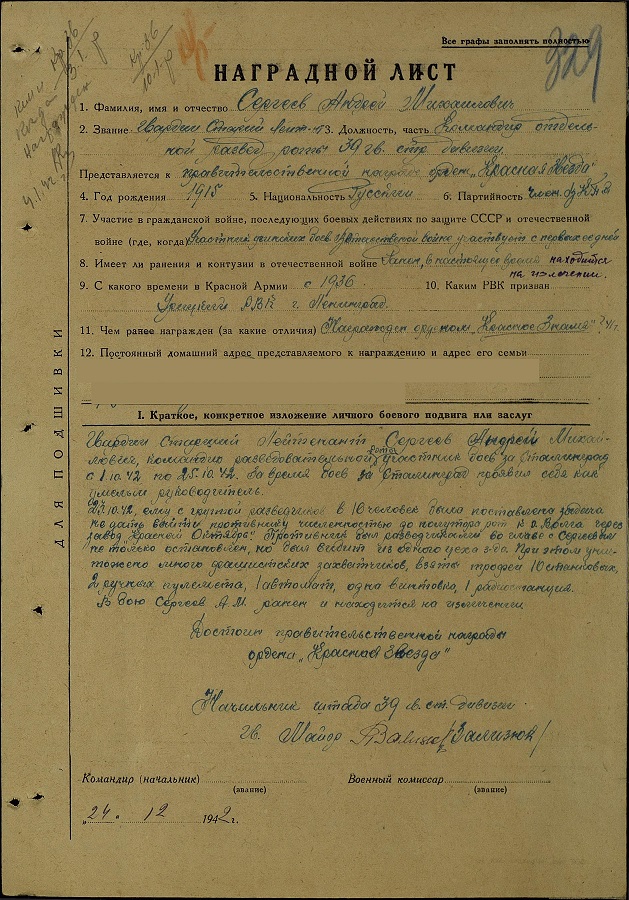 Все графы заполнять полностью
329
НАГРАДНОЙ ЛИСТ
1. Фамилия, имя и отчество Сергеев Андрей Михайлович
2. Звание Гвардии Старший Лейт-т 3. Должность, часть Командир отдель-
ной развед. роты 39 гв. стр. дивизии
Представляется к правительственной награде орден „Красная Звезда“
4. Год рождения 1915 5. Национальность Русский 6. Партийность Член
7. Участие в гражданской войне, последующих боевых действиях по защите СССР и отечественной
войне (где, когда) Участник финских боев участвует с первых дней
8. Имеет ли ранения и контузии в отечественной войне Ранен, в настоящее время находится
на излечении.
9. С какого времени в Красной Армии с 1936 10. Каким РВК призван
Урицкий РВК г. Ленинград.
11. Чем ранее награжден (за какие отличия) Награжден орденом „Красное Знамя“
12. Постоянный домашний адрес представляемого к награждению и адрес его семьи
ДЛЯ ПОДШИВКИ
I. Краткое, конкретное изложение личного боевого подвига или заслуг
Гвардии Старший Лейтенант Сергеев Андрей Михай-
лович, командир разведовательной роты участник боев за Сталинград
с 1.10.42 по 25.10.42. За время боев за Сталинград проявил себя как
умелый руководитель.
10.42, ему с группой разведчиков в 10 человек была поставлена задача
не дать выйти противнику численностью до полутора рот к р. Волга через
завод „Красный Октябрь“ Противник был разведчиками во главе с Сергеевым
не только остановлен, но был выбит из одного цеха з-да. При этом унич-
тожено много фашистских захватчиков, взяты трофеи 10 станковых,
2 ручных пулемета, 1 автомат, одна винтовка, 1 радиостанция.
В бою Сергеев А.М. ранен и находится на излечении
Достоин правительственной награды
ордена „Красная Звезда“
Начальник штаба 39 гв. ст. дивизии
гв. Майор /Зализюк/
Командир (начальник) Военный комиссар
(звание) (звание)
„24“ 12 1942 г.